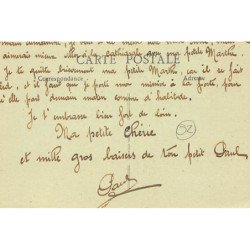 aimerais mieux la cathédrale avec ma petite Marthe
CARTE POSTALE
Je te quitte brièvement ma petite Marthe, car il se fait
Correspondance
Adresse
et il faut que je porte mon mission à la poste, pour
qu'elle parte demain matin comme d'habitude.
Je t'embrasse bien fort de loin.
Ma petite Chérie
52
et mille gros baisers de ton petit Paul
Paul